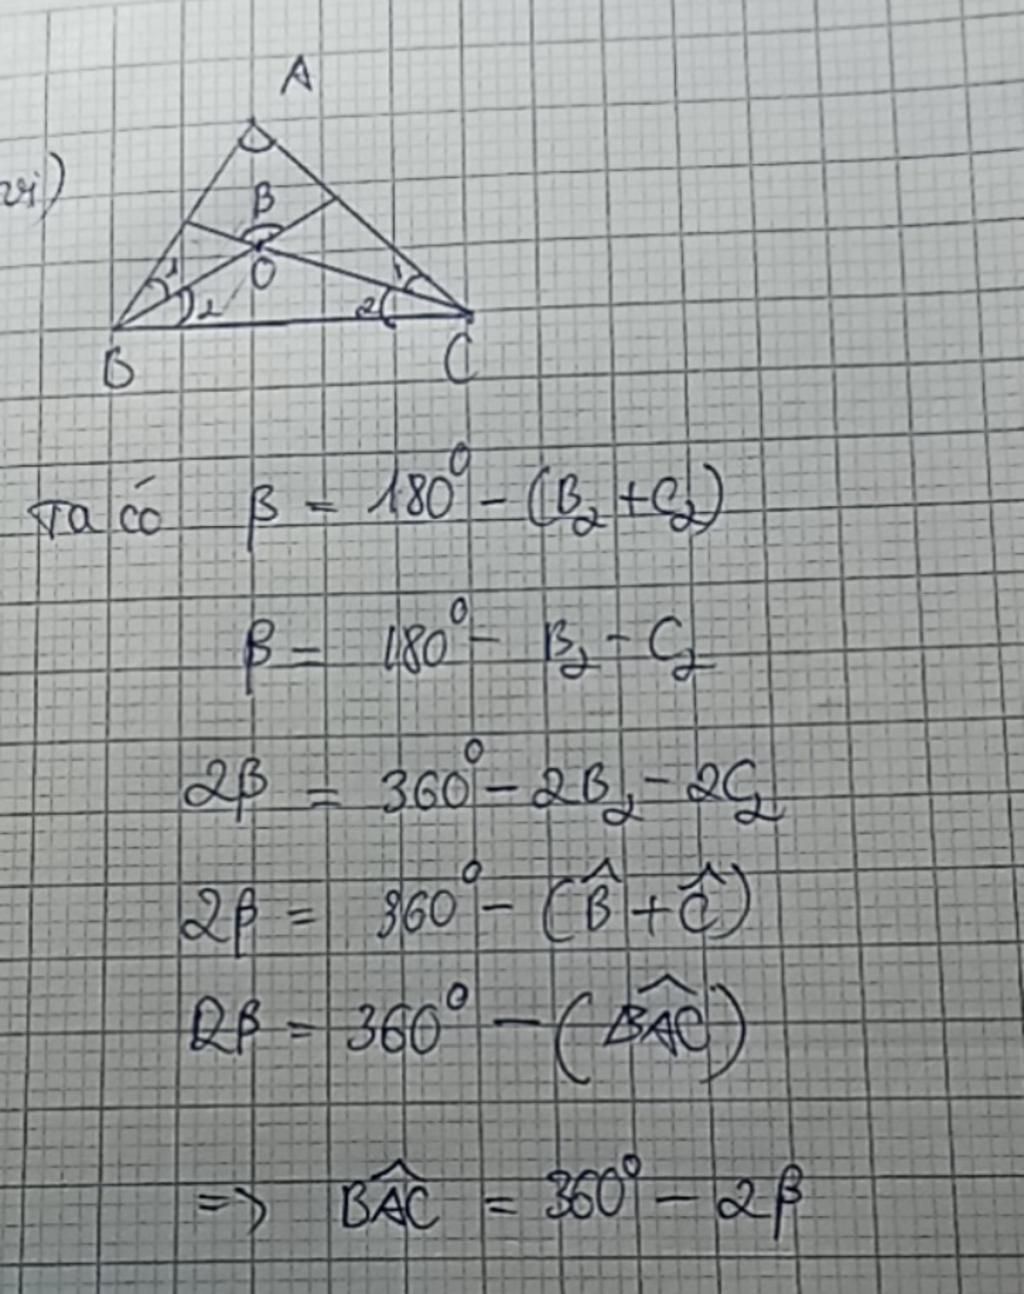 A
vi)
β
1
O
1
2
2
B
C
Ta có β = 180° - (B₂ + C₂)
β = 180° - B₂ - C₂
2β = 360° - 2B₂ - 2C₂
2β = 360° - (B̂ + Ĉ)
2β = 360° - (BÂC)
=> BÂC = 360° - 2β